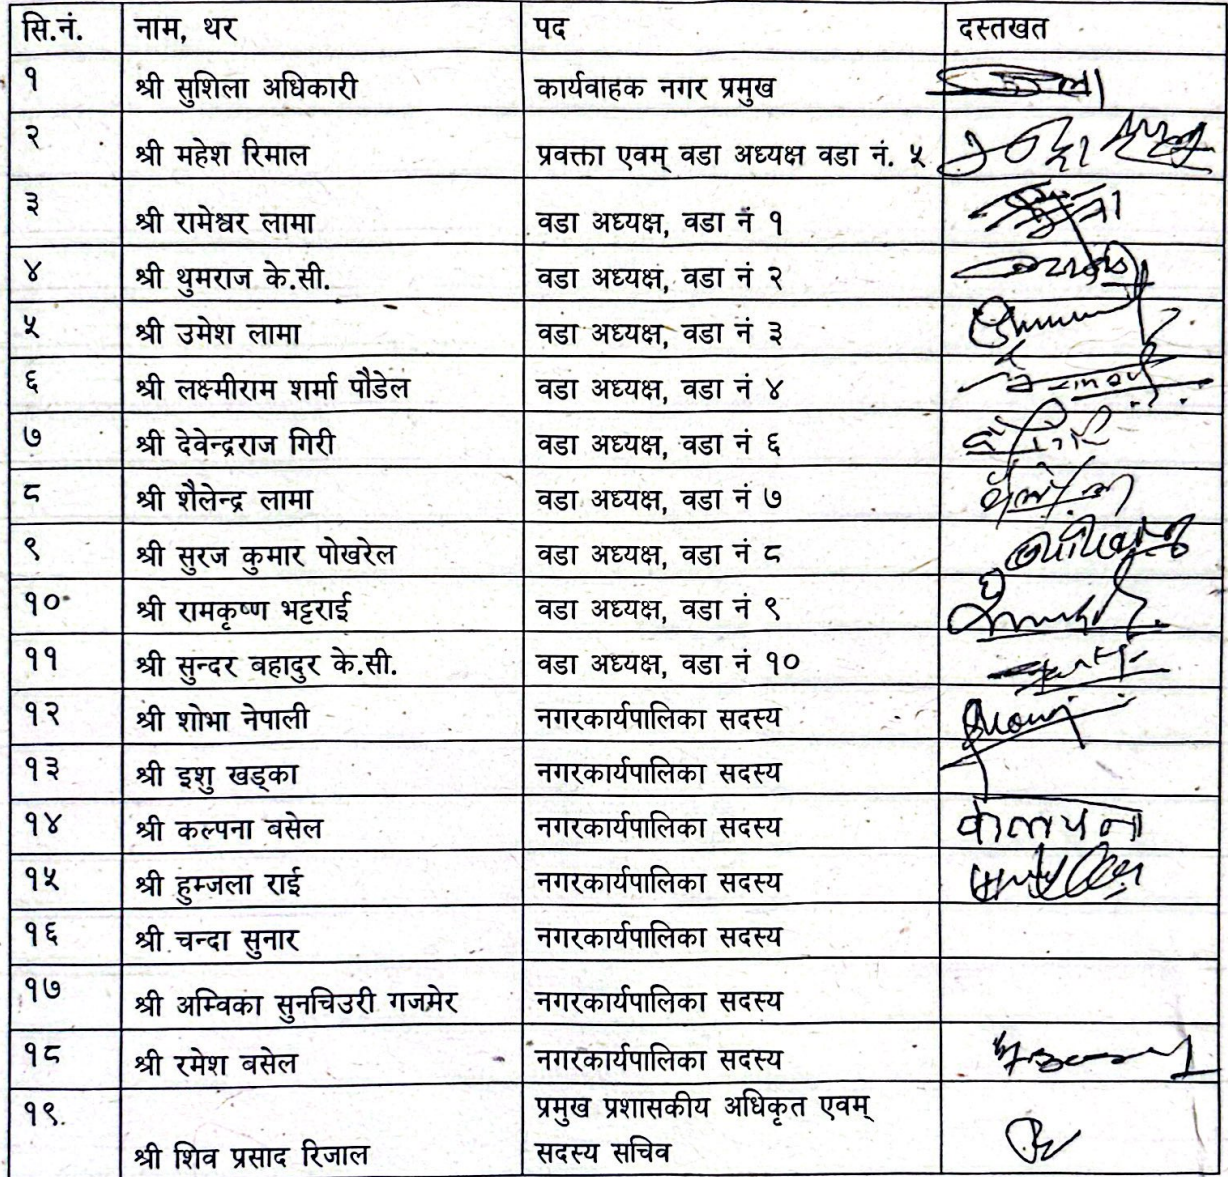 सि.नं. नाम, थर पद दस्तखत
१ श्री सुशिला अधिकारी कार्यवाहक नगर प्रमुख
२ श्री महेश रिमाल प्रवक्ता एवम् वडा अध्यक्ष वडा नं. ५
३ श्री रामेश्वर लामा वडा अध्यक्ष, वडा नं १
४ श्री थुमराज के.सी. वडा अध्यक्ष, वडा नं २
५ श्री उमेश लामा वडा अध्यक्ष, वडा नं ३
६ श्री लक्ष्मीराम शर्मा पौडेल वडा अध्यक्ष, वडा नं ४
७ श्री देवेन्द्रराज गिरी वडा अध्यक्ष, वडा नं ६
८ श्री शैलेन्द्र लामा वडा अध्यक्ष, वडा नं ७
९ श्री सुरज कुमार पोखरेल वडा अध्यक्ष, वडा नं ८
१० श्री रामकृष्ण भट्टराई वडा अध्यक्ष, वडा नं ९
११ श्री सुन्दर वहादुर के.सी. वडा अध्यक्ष, वडा नं १०
१२ श्री शोभा नेपाली नगरकार्यपालिका सदस्य
१३ श्री इशु खड्का नगरकार्यपालिका सदस्य
१४ श्री कल्पना बसेल नगरकार्यपालिका सदस्य कल्पना
१५ श्री हुम्जला राई नगरकार्यपालिका सदस्य
१६ श्री चन्दा सुनार नगरकार्यपालिका सदस्य
१७ श्री अम्विका सुनचिउरी गजमेर नगरकार्यपालिका सदस्य
१८ श्री रमेश बसेल नगरकार्यपालिका सदस्य
१९ प्रमुख प्रशासकीय अधिकृत एवम्
श्री शिव प्रसाद रिजाल सदस्य सचिव